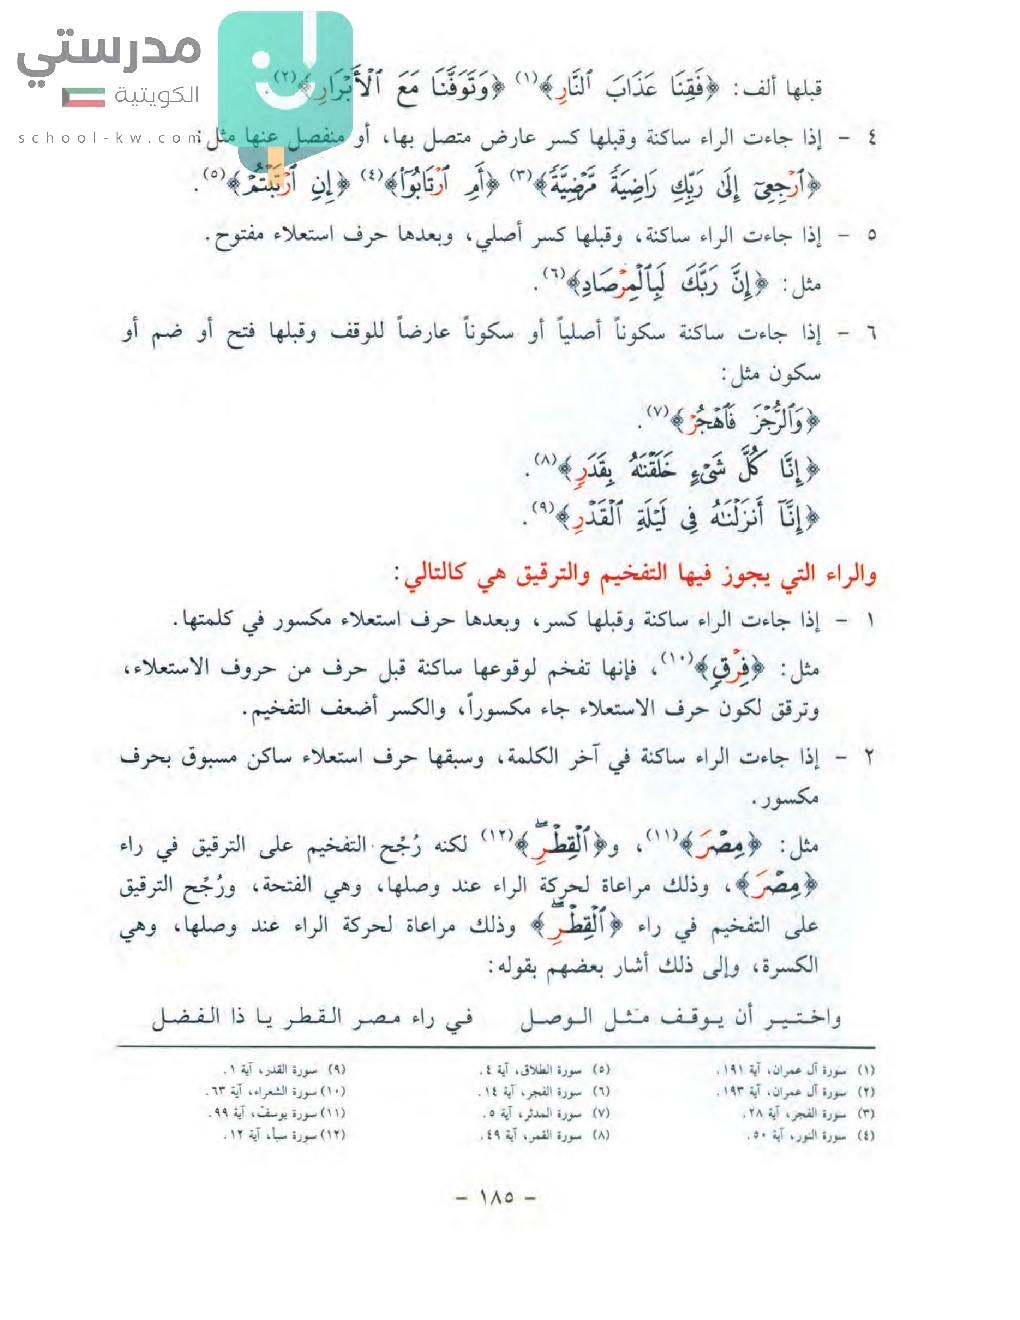 مدرستي
الكويتية
school-kw.com
قبلها ألف: ﴿فَقِنَا عَذَابَ ٱلنَّارِ﴾(١) ﴿وَتَوَفَّنَا مَعَ ٱلْأَبْرَارِ﴾(٢).
٤ - إذا جاءت الراء ساكنة وقبلها كسر عارض متصل بها، أو منفصل عنها مثل:
﴿ٱرْجِعِىٓ إِلَىٰ رَبِّكِ رَاضِيَةً مَّرْضِيَّةً﴾(٣) ﴿أَمِ ٱرْتَابُوٓا۟﴾(٤) ﴿إِنِ ٱرْتَبْتُمْ﴾(٥).
٥ - إذا جاءت الراء ساكنة، وقبلها كسر أصلي، وبعدها حرف استعلاء مفتوح.
مثل: ﴿إِنَّ رَبَّكَ لَبِٱلْمِرْصَادِ﴾(٦).
٦ - إذا جاءت ساكنة سكوناً أصلياً أو سكوناً عارضاً للوقف وقبلها فتح أو ضم أو
سكون مثل:
﴿وَٱلرُّجْزَ فَٱهْجُرْ﴾(٧).
﴿إِنَّا كُلَّ شَىْءٍ خَلَقْنَٰهُ بِقَدَرٍ﴾(٨).
﴿إِنَّآ أَنزَلْنَٰهُ فِى لَيْلَةِ ٱلْقَدْرِ﴾(٩).
والراء التي يجوز فيها التفخيم والترقيق هي كالتالي:
١ - إذا جاءت الراء ساكنة وقبلها كسر، وبعدها حرف استعلاء مكسور في كلمتها.
مثل: ﴿فِرْقٍ﴾(١٠)، فإنها تفخم لوقوعها ساكنة قبل حرف من حروف الاستعلاء،
وترقق لكون حرف الاستعلاء جاء مكسوراً، والكسر أضعف التفخيم.
٢ - إذا جاءت الراء ساكنة في آخر الكلمة، وسبقها حرف استعلاء ساكن مسبوق بحرف
مكسور.
مثل: ﴿مِصْرَ﴾(١١)، و﴿ٱلْقِطْرِۖ﴾(١٢) لكنه رُجّح التفخيم على الترقيق في راء
﴿مِصْرَ﴾، وذلك مراعاة لحركة الراء عند وصلها، وهي الفتحة، ورُجّح الترقيق
على التفخيم في راء ﴿ٱلْقِطْرِۖ﴾ وذلك مراعاة لحركة الراء عند وصلها، وهي
الكسرة، وإلى ذلك أشار بعضهم بقوله:
واختير أن يوقف مثل الوصل في راء مصر القطر يا ذا الفضل
(١) سورة آل عمران، آية ١٩١. (٥) سورة الطلاق، آية ٤. (٩) سورة القدر، آية ١.
(٢) سورة آل عمران، آية ١٩٣. (٦) سورة الفجر، آية ١٤. (١٠) سورة الشعراء، آية ٦٣.
(٣) سورة الفجر، آية ٢٨. (٧) سورة المدثر، آية ٥. (١١) سورة يوسف، آية ٩٩.
(٤) سورة النور، آية ٥٠. (٨) سورة القمر، آية ٤٩. (١٢) سورة سبأ، آية ١٢.
- ١٨٥ -